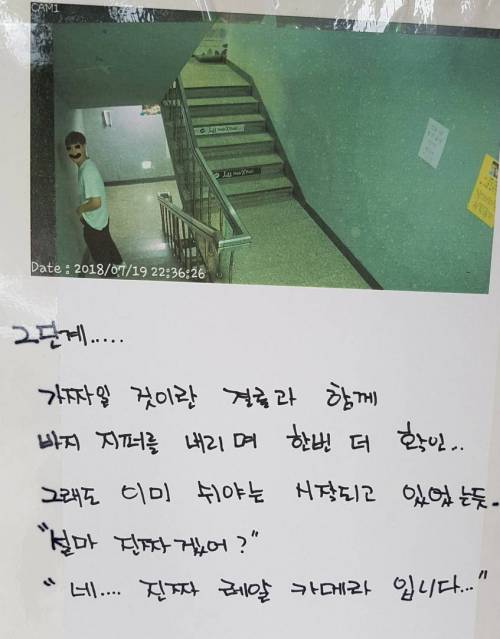 CAM1
Date : 2018/07/19 22:36:26
2단계.....
가짜일 것이란 결론과 함께
바지 지퍼를 내리며 한번 더 확인..
그래도 이미 쉬야는 시작되고 있었는듯.
"설마 진짜겠어?"
"네.... 진짜 레알 카메라 입니다..."